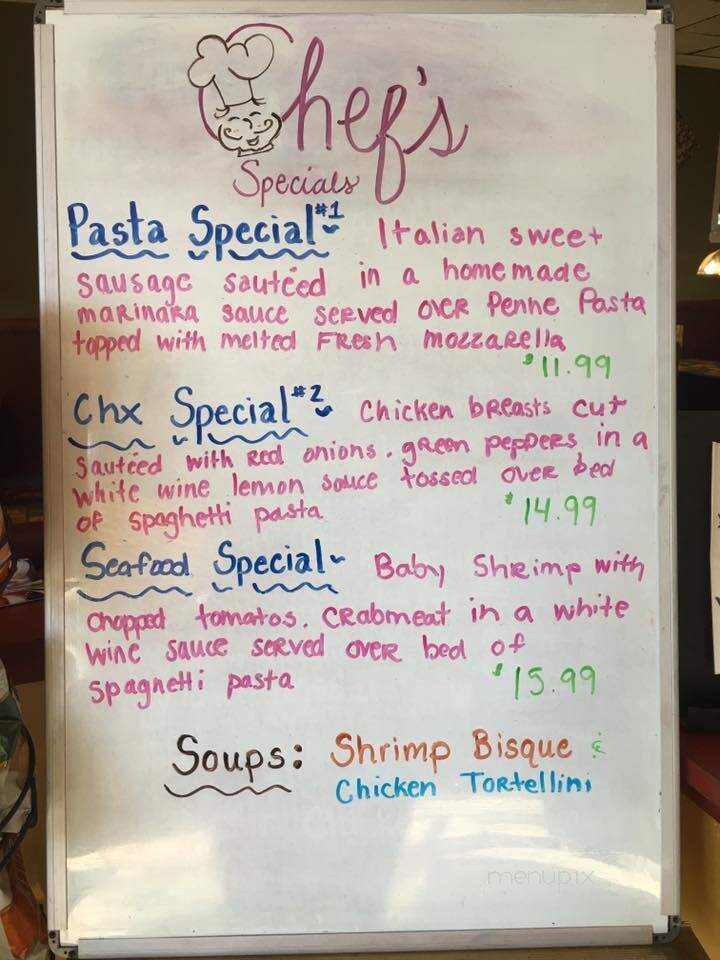 Chef's
Specials
Pasta Special #1 ~ Italian sweet
sausage sautéed in a homemade
marinara sauce served over Penne Pasta
topped with melted Fresh mozzarella
$11.99
Chx Special #2 ~ Chicken breasts cut
sautéed with Red onions. green peppers in a
white wine lemon sauce tossed over bed
of spaghetti pasta
$14.99
Seafood Special ~ Baby Shrimp with
chopped tomatos. Crabmeat in a white
wine sauce served over bed of
spaghetti pasta
$15.99
Soups: Shrimp Bisque &
Chicken Tortellini
menupix